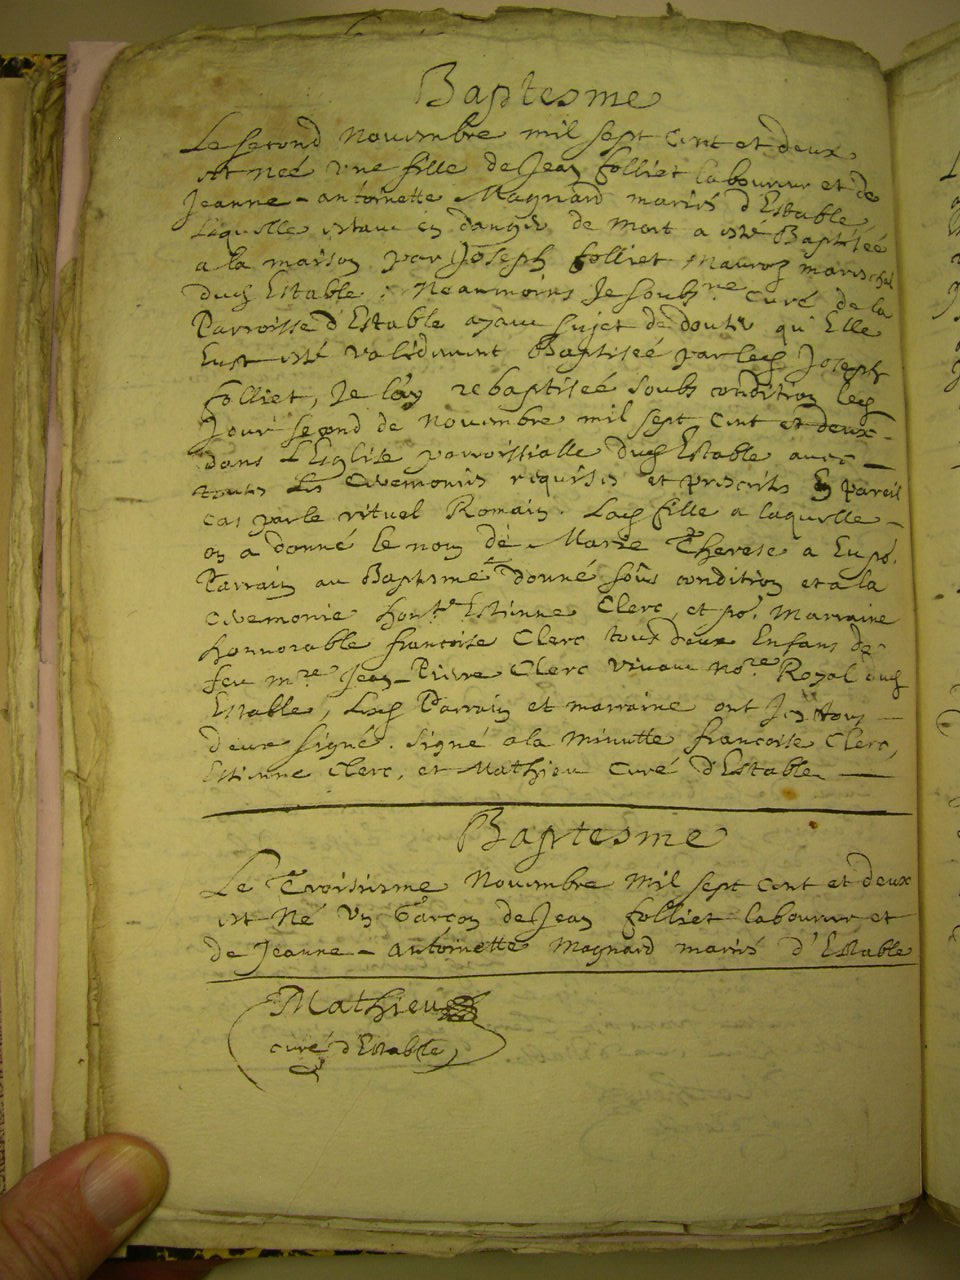 Baptesme
Le second Nouembre mil sept cent et deux
est neé Vne fille de Jean folliet laboureur et de
Jeanne-antoinette Magnard mariés d'Estable,
Laquelle estant en danger de mort a esté Baptiseé
a la maison par Joseph folliet Mauroz mareschal
dud Estable; Neanmoins Je soubs.ne Curé de la
Parroisse d'Estable ayant sujet de douter qu'Elle
Eust esté validement Baptiseé par led Joseph
folliet, Je l'ay rebaptiseé soubs condition led
Jour second de Nouembre mil sept Cent et deux
dans L'Eglise parroissialle dud Estable auec
toutes les Ceremonies requises et prescrites En pareil
cas par le rituel Romain. Lad fille a laquelle
on a donné le nom de Marie Therese a Eu po.
Parrain au Baptesme donné soûs condition et a la
Ceremonie hon.e Estienne Clerc, et po. Marraine
honnorable francoise Clerc tous deux Enfans de
feu m.re Jean-Pierre Clerc viuant No.re Royal dud
Estable, Lesd Parrain et marraine ont Jcy tous
deux signé. signé a la minutte francoise Clerc,
Estienne Clerc, et Mathieu curé d'Estable
Baptesme
Le Troisiesme Nouembre Mil sept cent et deux
est Né Vn Garcon de Jean folliet laboureur et
de Jeanne-antoinette Magnard mariés d'Estable
Mathieu
curé d'Estable